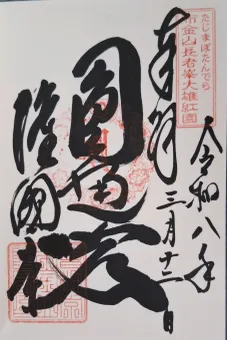 たじまぼたんでら
布金山長者峯大雄紅園
令和八年
三月十二日
奉拝
圓通
隆國寺